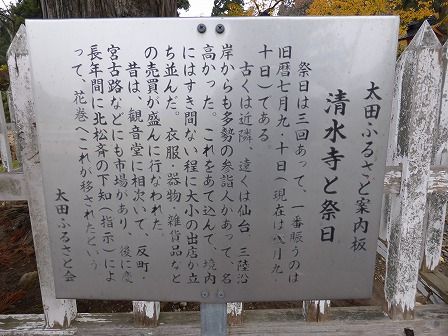 太田ふるさと案内板
清水寺と祭日
祭日は三回あって、一番賑うのは
旧暦七月九・十日（現在は八月九・
十日）である。
古くは近隣、遠くは仙台、三陸沿
岸からも多勢の参詣人があって、名
高かった。これをあて込んで、境内
にはすき間ない程に大小の出店が立
ち並んだ。衣服・器物・雑貨品など
の売買が盛んに行なわれた。
昔は、観音堂に相次いで、反町・
宮古路などにも市場があり、後に慶
長年間に北松斉の下知（指示）によ
って、花巻へこれが移されたという。
太田ふるさと会